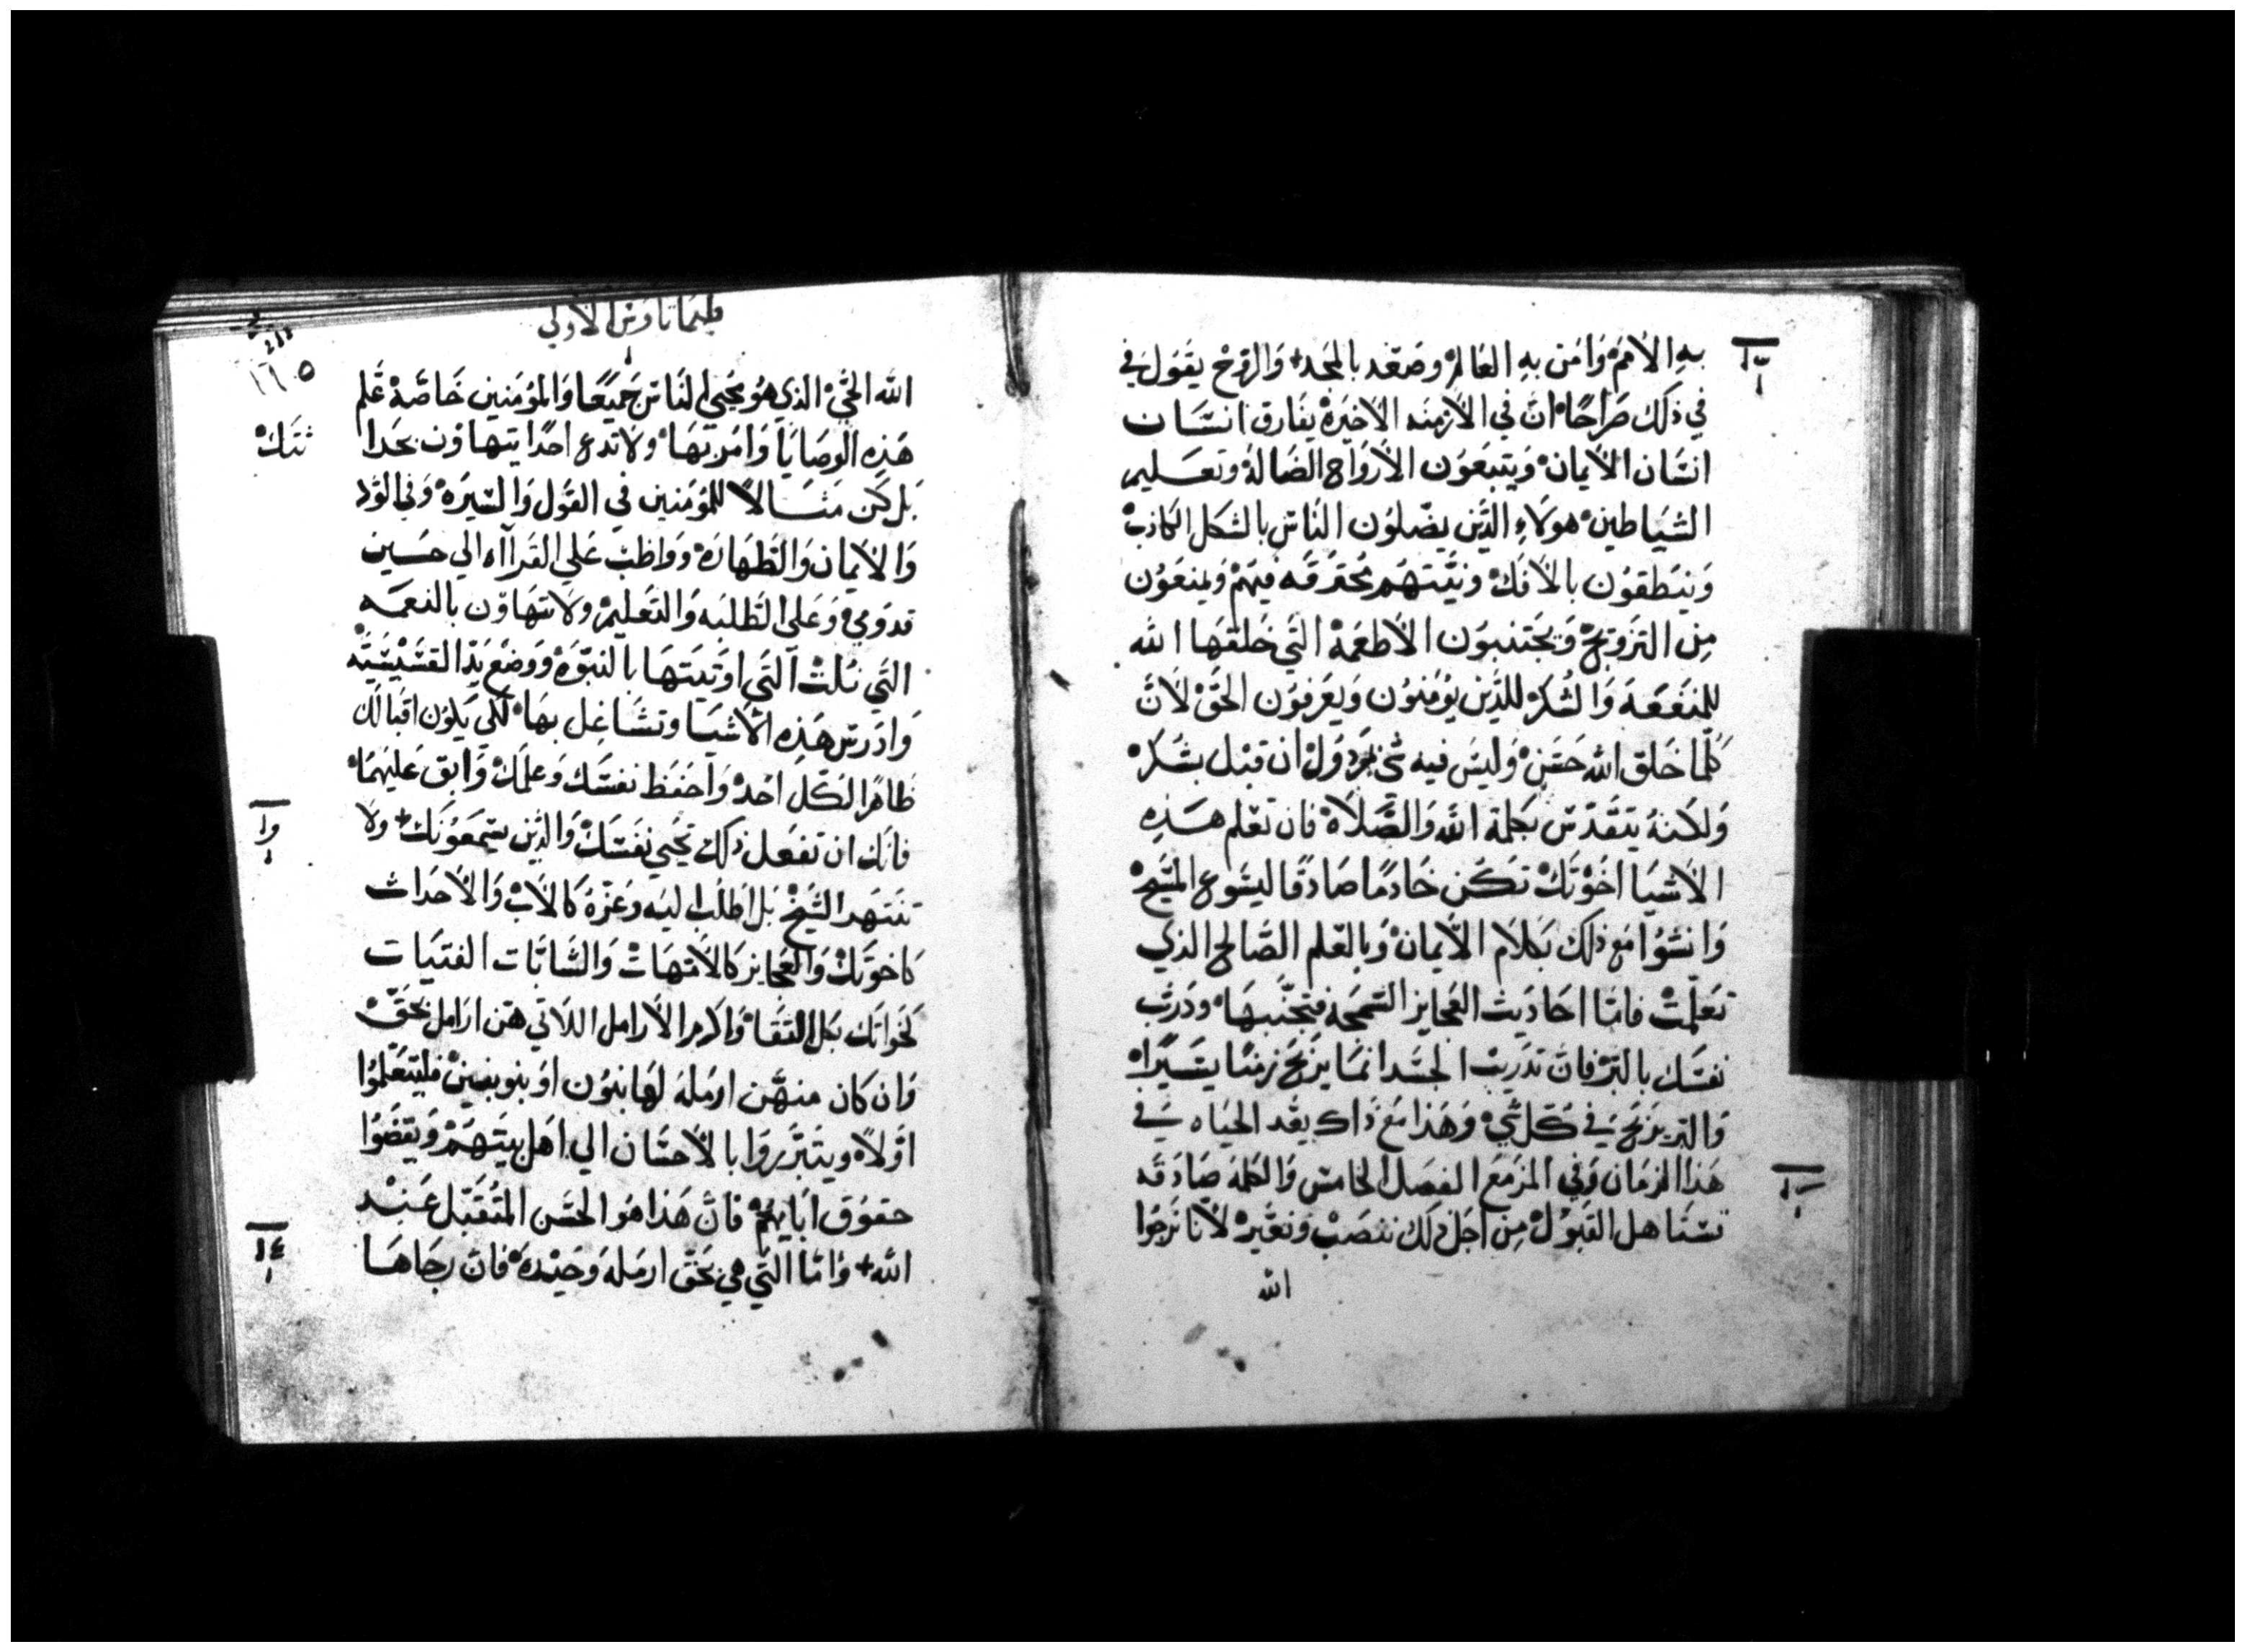 به الامم وَامَن بهِ العَالم وصَعَد بالمجد+ وَالروُح يقوَل في
في ذلك صَرَاحًا ان في الازمنه الاخيَرة يفَارق انسَان
انسَان الايمان وَيتبعَوُن الارَوَاح الضَالة وتعَسليم
الشيَاطين هوَلاءِ الذَين يضَلوُن الناسَ بالشكل الكاذبْ
وَينطقوُن بالافكْ ونيَتهَم محَترقَه فيهَمْ وَيمنعَوُن
مِن التزوَيجْ وَيجَتنبوَن الاطعَمة التي خلقهَا الله
للمنفعَة وَالشُكرْ للذَين يؤمنوُن وَيعَرفوُن الحَق لانَ
كلما خَلق الله حَسَن وَليسَ فيه شي مرَدوَل ان قبل بشكرْ
وَلكنهُ يتقدسَ بكلمة الله وَالصَلاة فان تعَلم هَذِه
الاشيَا اخَوتكْ تكَن خَادمًا صَادقًا ليسَوع المسَيحْ
وَانشوُا مع ذلك بكلام الايمان وَبالعَلم الصَالح الذي
تعَلمتْ فامَا احَاديث العَجايز السَمجَه فتجنبهَا ودَرب
نفسَك بالبرْ فان تدَريبْ الجسَد انمَا يرَبح زمنًا يسَيرًا
وَالبر يرَبحَ في كَل شيْ وَهَذا مع ذاك يقد الحيَاه في
هَذا الزمَان وَفي المزمَع الفصَل الخامسَ وَالكلمة صَادقه
تسَتاهل القبوَلْ مِن اجَل ذلك ننصَبْ وَنعَيرْ لانا نرَجوُا
الله
طيماتاوس الاولي
١٦٥
الله الحَي الذي هوُ محَيي الناسَ جَميَعًا وَالموُمَنين خَاصَة عَلم
هَذِه الوصَايَا وَامَر بهَا وَلا تدَع احدًا يتهَاوَن بحَداثتكْ
بل كَن مَثسالاً للموُمَنين في القوَل وَالسَيرَة وَفي الوَد
وَالايَمان وَالطهَارَة وَوَاظبْ عَلي القرَاآه الي حسين
قدوَمي وَعَلي الطلبَه وَالتعَليم وَلا تتهَاوَن بالنعَمه
التَي نلتْ التَي اوَتيَتهَا بالنبوَة وَوضَع يدَ القسَيسَيَه
وَادَرسَ هَذِه الاشيَا وتشَاغِل بهَا لكي يكوُن اقبَالك
ظاهَرا لكَل احَد وَاحفَظ نفسَك وَعلمَكْ وَابق عَليهَما
فانك ان تفعَل ذلك تحَيي نفسَكْ وَالذَين يسَمعَوُنك+ وَلا
تنتهَر الشيَخْ بل اطلبْ اليَه وَعَزه كالابْ وَالاحَداث
كاخوَتكْ وَالعَجايز كالامهَاتْ وَالشاباَت الفتيَات
كخواتك بكل النقا وَاكرَم الارامل اللاتي هَن ارَامل بحَقْ
وَان كان منهَن ارمَلة لهَا بنوُن اوَ بنوا بنينْ فليتعَلموُا
اوَلاً ويتبَررَوَا بالاحسَان الي اهَل بيتهَمْ وَيقضوَا
حقوُق ابَايهَمْ فانَ هَذا هوُ الحسَن المتقَبل عَنِد
الله+ وَامَا التي هي بحَق ارمَلة وَحيَدَة فان رجَاهَا